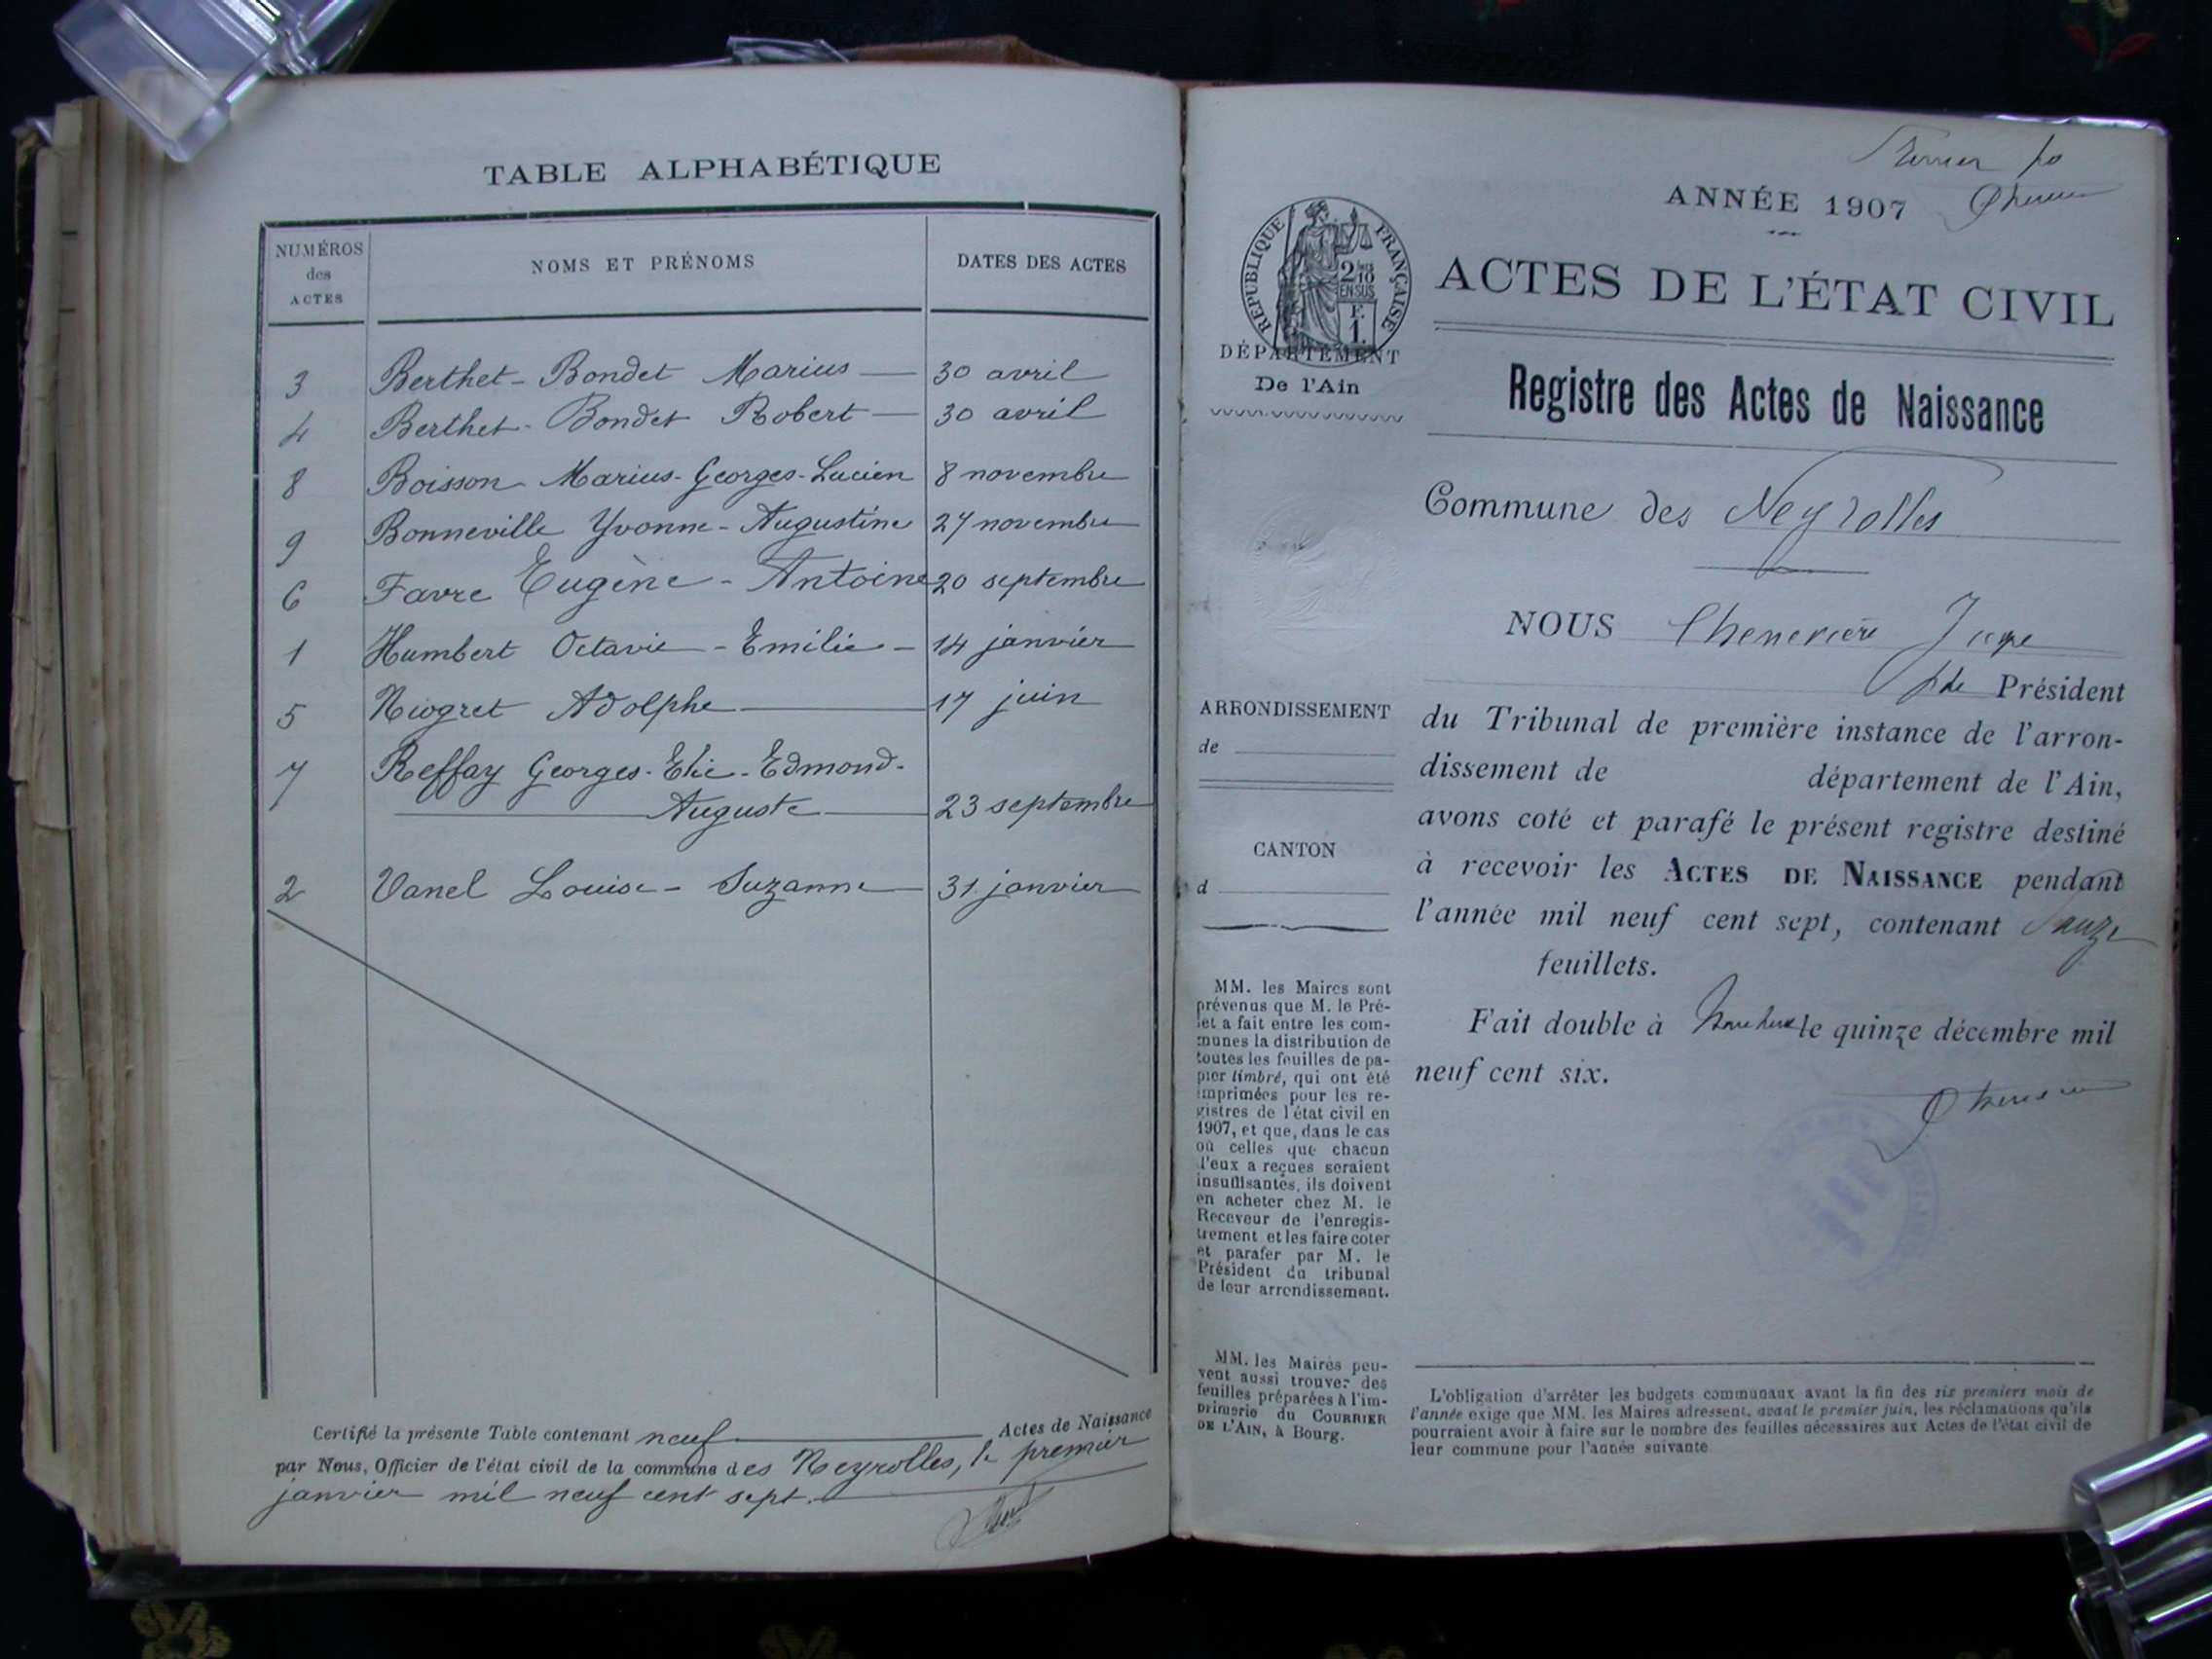 TABLE ALPHABÉTIQUE
NUMÉROS des ACTES NOMS ET PRÉNOMS DATES DES ACTES
3 Berthet-Bondet Marius 30 avril
4 Berthet-Bondet Robert 30 avril
8 Boisson Marius-Georges-Lucien 8 novembre
9 Bonneville Yvonne-Augustine 27 novembre
6 Favre Eugène-Antoine 20 septembre
1 Humbert Octavie-Emilie 14 janvier
5 Niogret Adolphe 17 juin
7 Reffay Georges-Elie-Edmond-
Auguste 23 septembre
2 Vanel Louise-Suzanne 31 janvier
Certifié la présente Table contenant neuf Actes de Naissance
par Nous, Officier de l'état civil de la commune des Neyrolles, le premier
janvier mil neuf cent sept.
ANNÉE 1907
RÉPUBLIQUE FRANÇAISE
2/10
EN SUS
F.
1.
ACTES DE L'ÉTAT CIVIL
DÉPARTEMENT
De l'Ain
Registre des Actes de Naissance
Commune des Neyrolles
NOUS
Président
ARRONDISSEMENT
de
du Tribunal de première instance de l'arron-
dissement de département de l'Ain,
avons coté et parafé le présent registre destiné
CANTON
d
à recevoir les ACTES DE NAISSANCE pendant
l'année mil neuf cent sept, contenant
feuillets.
Fait double à le quinze décembre mil
neuf cent six.
MM. les Maires sont
prévenus que M. le Pré-
fet a fait entre les com-
munes la distribution de
toutes les feuilles de pa-
pier timbré, qui ont été
imprimées pour les re-
gistres de l'état civil en
1907, et que, dans le cas
où celles que chacun
d'eux a reçues seraient
insuffisantes, ils doivent
en acheter chez M. le
Receveur de l'enregis-
trement et les faire coter
et parafer par M. le
Président du tribunal
de leur arrondissement.
MM. les Maires peu-
vent aussi trouver des
feuilles préparées à l'im-
primerie du COURRIER
DE L'AIN, à Bourg.
L'obligation d'arrêter les budgets communaux avant la fin des six premiers mois de
l'année exige que MM. les Maires adressent, avant le premier juin, les réclamations qu'ils
pourraient avoir à faire sur le nombre des feuilles nécessaires aux Actes de l'état civil de
leur commune pour l'année suivante